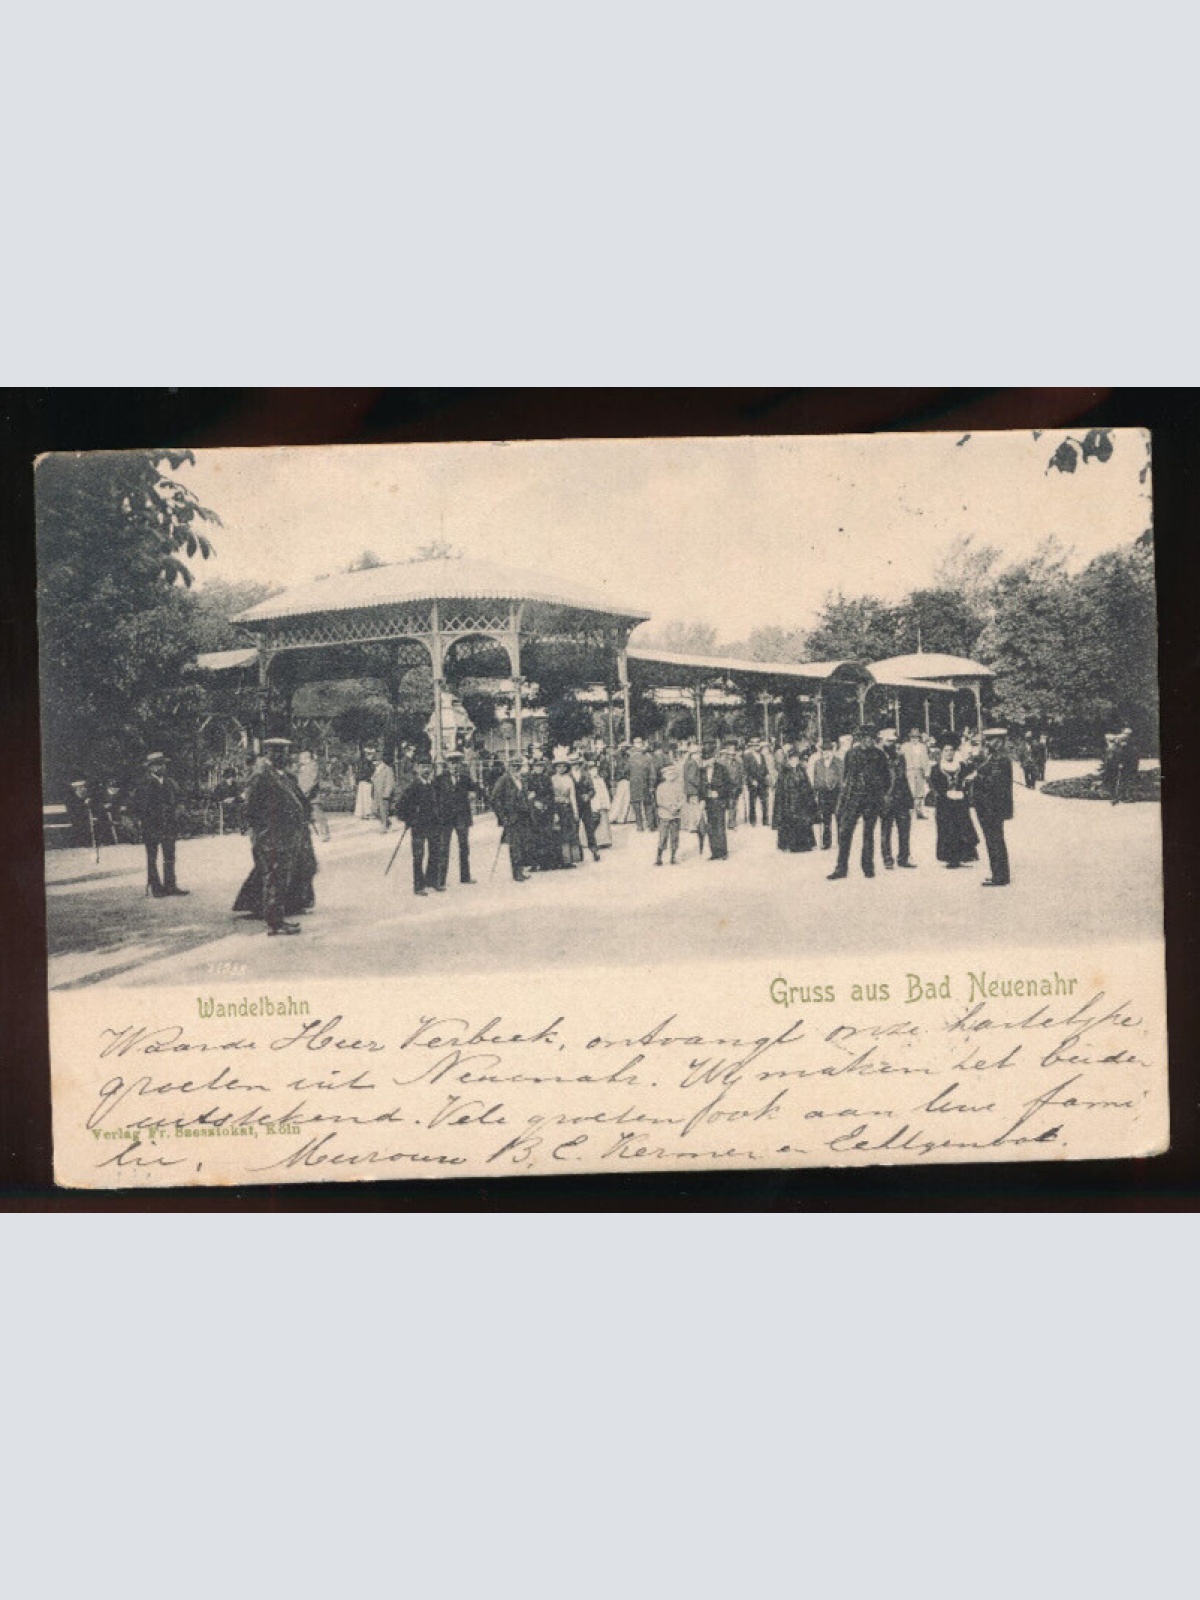 Wandelbahn
Gruss aus Bad Neuenahr
Waarde Heer Verbeek, ontvangt onze hartelijke
groeten uit Neuenahr. Wij maken het beiden
uitstekend. Vele groeten ook aan Uwe fami
Verlag Fr. Szesztokat, Köln
lie. Mevrouw B. C. Kermer en Echtgenoot.